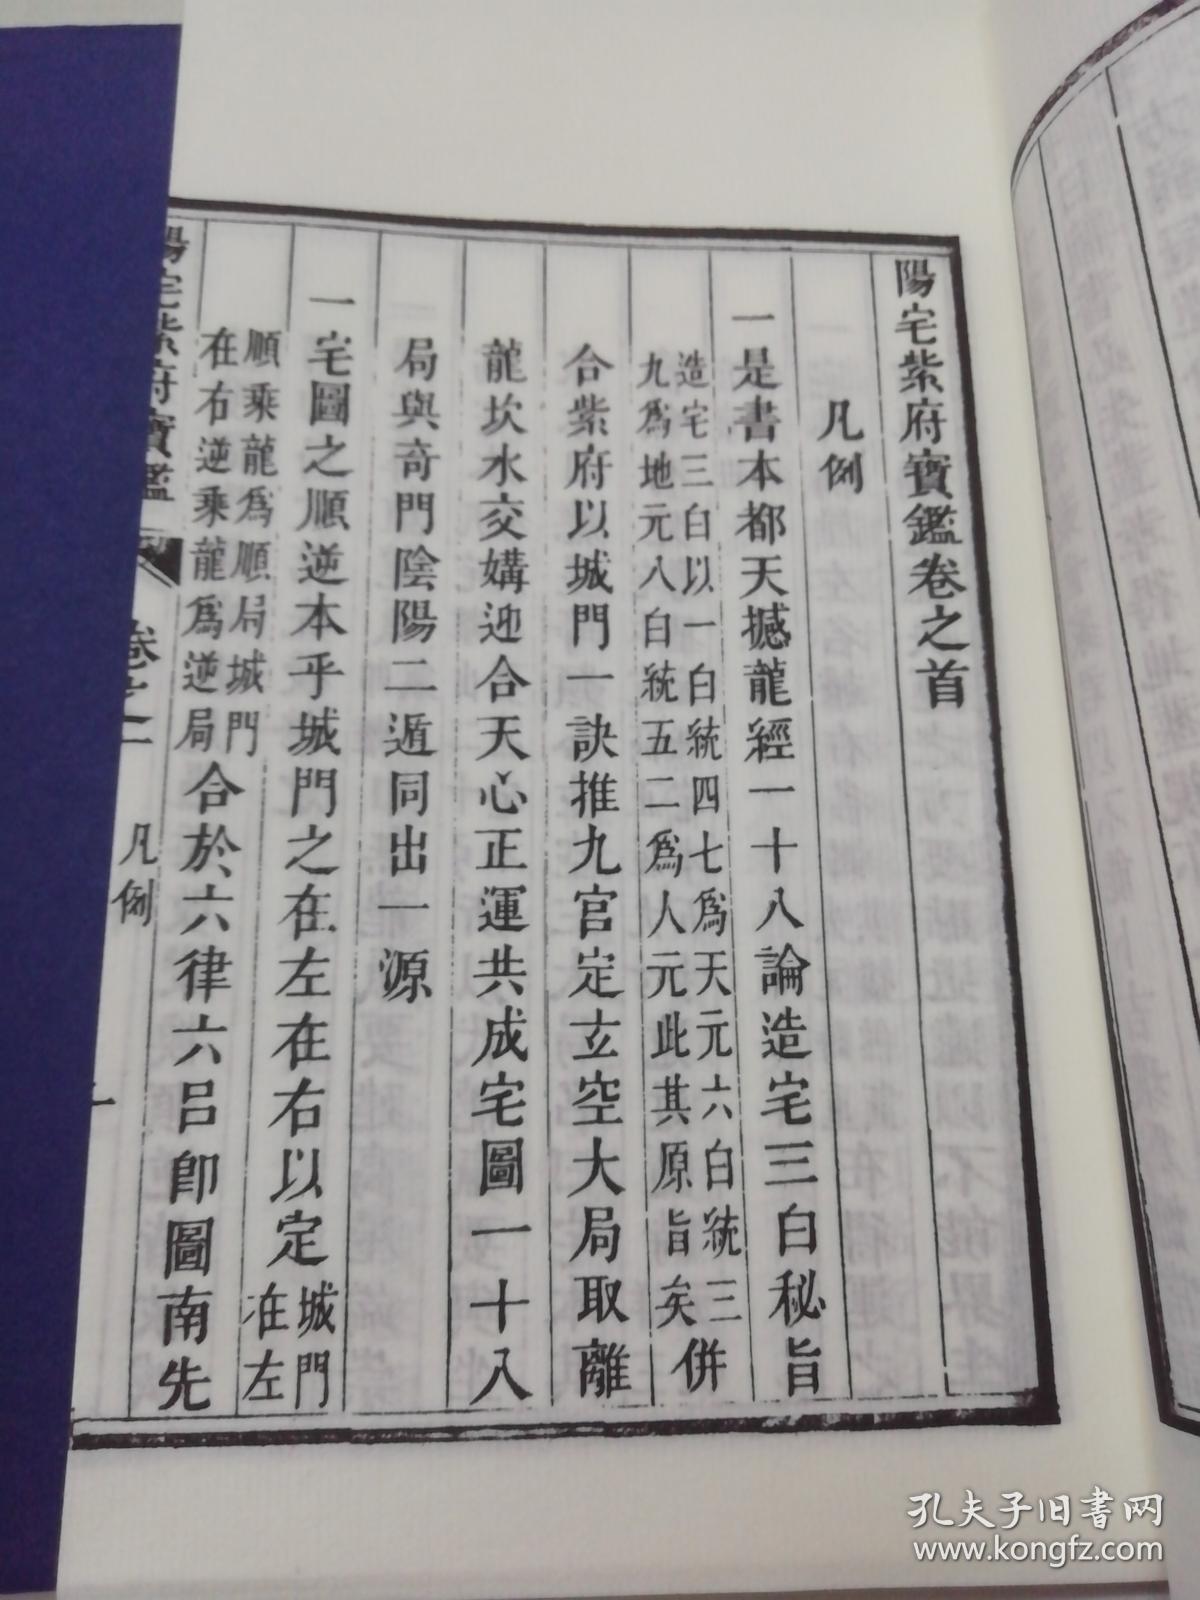 陽宅紫府寶鑑卷之首
凡例
一是書本都天撼龍經一十八論造宅三白秘旨
造宅三白以一白統四七爲天元六白統三
九爲地元八白統五二爲人元此其原旨矣併
合紫府以城門一訣推九宮定立空大局取離
龍坎水交媾迎合天心正運共成宅圖一十八
局與奇門陰陽二遁同出一源
一宅圖之順逆本乎城門之在左在右以定城門
在左
順乘龍爲順局城門
在右逆乘龍爲逆局合於六律六呂卽圖南先
陽宅紫府寶鑑
卷之
凡例
一
孔夫子旧书网
www.kongfz.com